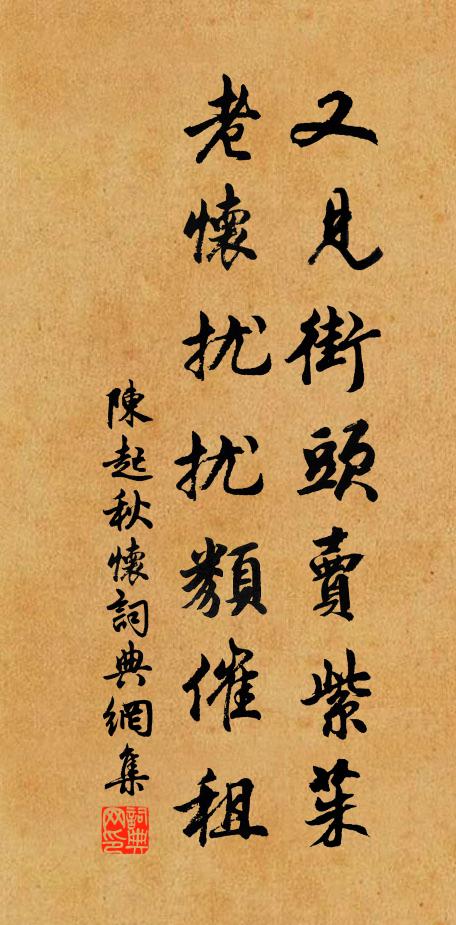 又見街頭賣紫茱
老懷扰扰類催租
陳起秋懷詞典網集
詞典网印